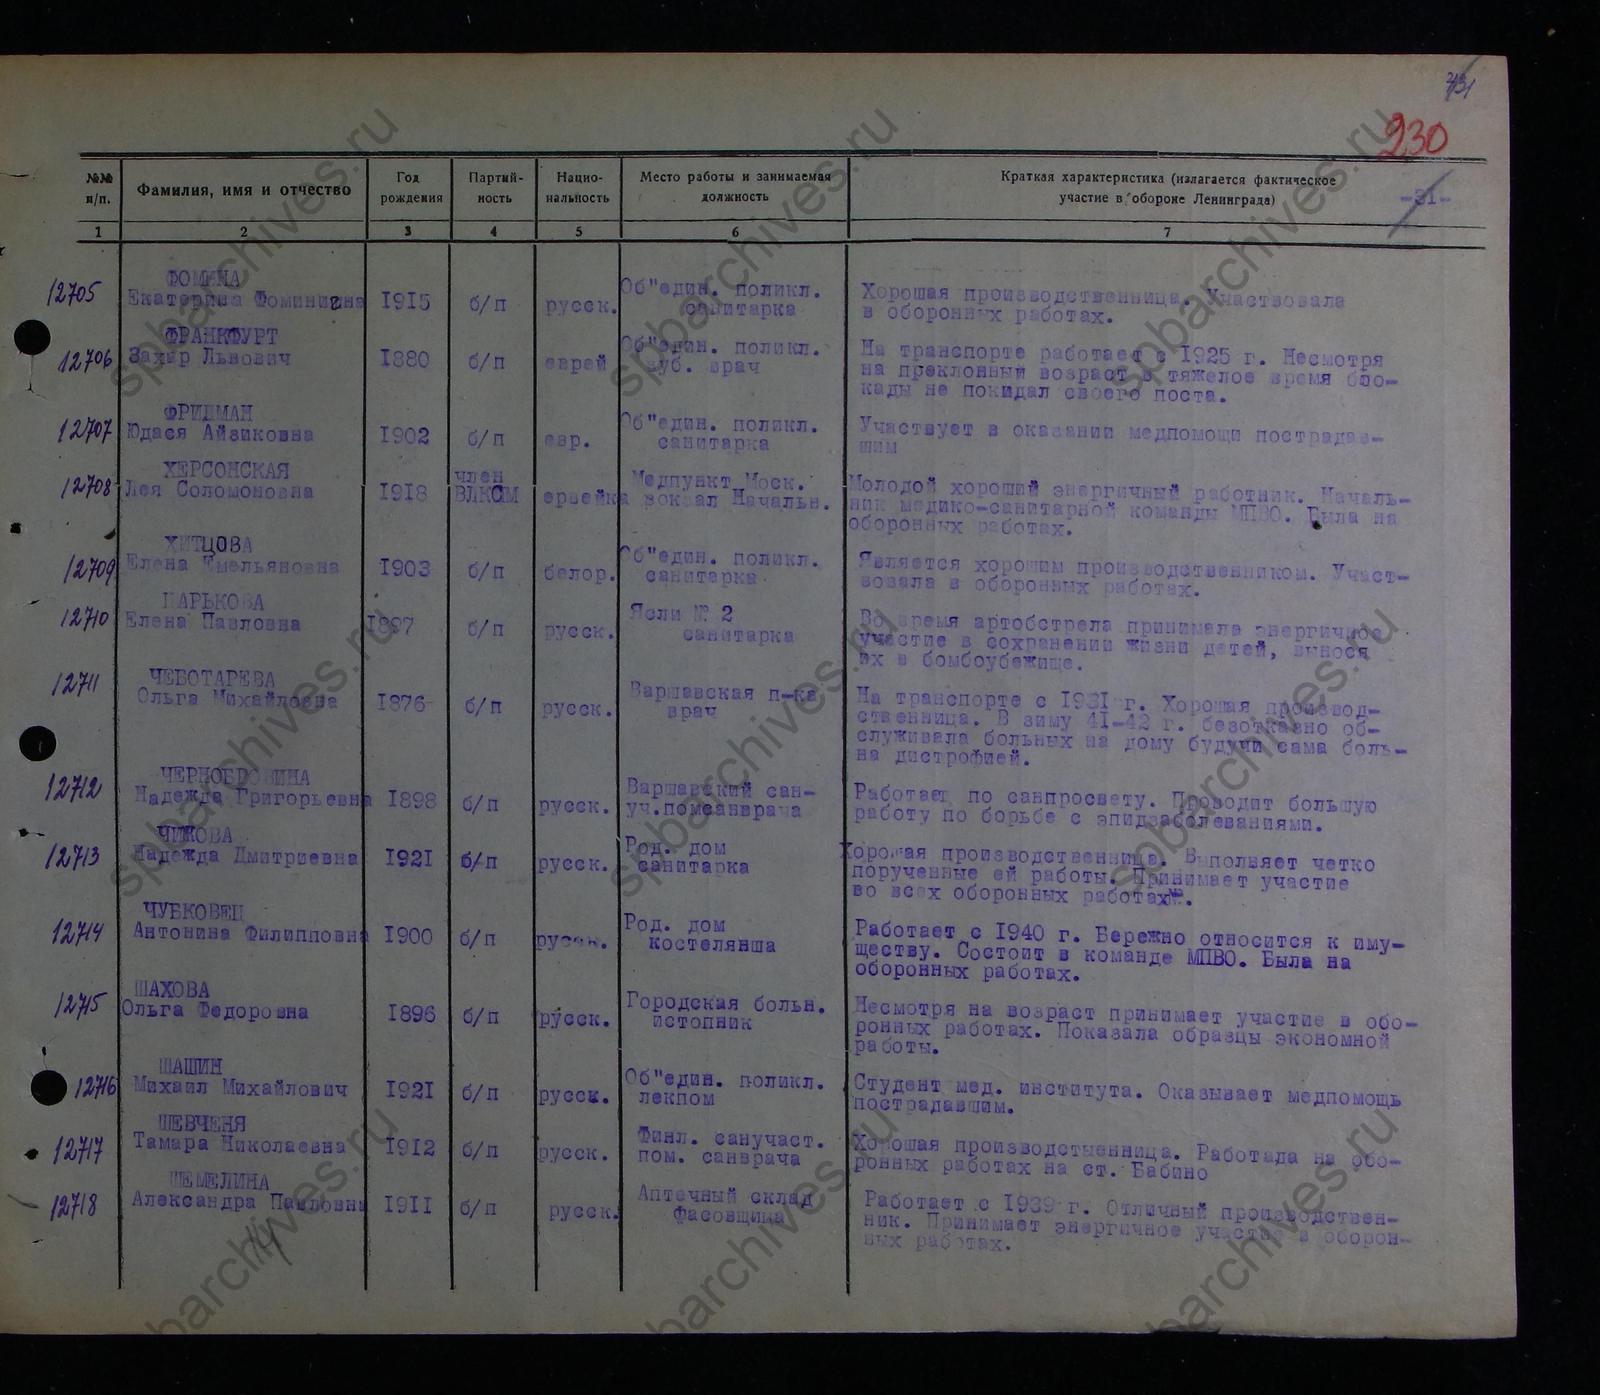 230
№№ п/п. Фамилия, имя и отчество Год рождения Партий-ность Нацио-нальность Место работы и занимаемая должность Краткая характеристика (излагается фактическое участие в обороне Ленинграда)
-31-
1 2 3 4 5 6 7
ФОМИНА
12705 Екатерина Фоминишна 1915 б/п русск. Об"един. поликл. санитарка Хорошая производственница. Участвовала
в оборонных работах.
ФРАНКФУРТ
12706 Захар Львович 1880 б/п еврей Об"един. поликл. зуб. врач На транспорте работает с 1925 г. Несмотря
на преклонный возраст в тяжелое время бло-
кады не покидал своего поста.
ФРИДМАН
12707 Юдася Айзиковна 1902 б/п евр. Об"един. поликл. санитарка Участвует в оказании медпомощи пострадав-
шим
ХЕРСОНСКАЯ
12708 Лея Соломоновна 1918 член ВЛКСМ ервейка Медпункт Моск. вокзал Начальн. Молодой хороший энергичный работник. Началь-
ник медико-санитарной команды МПВО. Была на
оборонных работах.
ХИТЦОВА
12709 Елена Емельяновна 1903 б/п белор. Об"един. поликл. санитарка Является хорошим производственником. Участ-
вовала в оборонных работах.
ЦАРЬКОВА
12710 Елена Павловна 1897 б/п русск. Ясли № 2 санитарка Во время артобстрела принимала энергичное
участие в сохранении жизни детей, вынося
их в бомбоубежище.
ЧЕБОТАРЕВА
12711 Ольга Михайловна 1876 б/п русск. Варшавская п-ка врач На транспорте с 1931 г. Хорошая производ-
ственница. В зиму 41-42 г. безотказно об-
служивала больных на дому будучи сама боль-
на дистрофией.
ЧЕРНОБРОВИНА
12712 Надежда Григорьевна 1898 б/п русск. Варшавский сан-уч.помсанврача Работает по санпросвету. Проводит большую
работу по борьбе с эпидзаболеваниями.
ЧИЖОВА
12713 Надежда Дмитриевна 1921 б/п русск. Род. дом санитарка Хорошая производственница. Выполняет четко
порученные ей работы. Принимает участие
во всех оборонных работах.
ЧУБКОВЕЦ
12714 Антонина Филипповна 1900 б/п русск. Род. дом костелянша Работает с 1940 г. Бережно относится к иму-
ществу. Состоит в команде МПВО. Была на
оборонных работах.
ШАХОВА
12715 Ольга Федоровна 1896 б/п русск. Городская больн. истопник Несмотря на возраст принимает участие в обо-
ронных работах. Показала образцы экономной
работы.
ШАШИН
12716 Михаил Михайлович 1921 б/п русск. Об"един. поликл. лекпом Студент мед. института. Оказывает медпомощь
пострадавшим.
ШЕВЧЕНЯ
12717 Тамара Николаевна 1912 б/п русск. Финл. санучаст. пом. санврача Хорошая производственница. Работала на обо-
ронных работах на ст. Бабино
ШЕМЕЛИНА
12718 Александра Павловна 1911 б/п русск. Аптечный склад Фасовщица Работает с 1939 г. Отличный производствен-
ник. Принимает энергичное участие в оборон-
ных работах.
14
spbarchives.ru